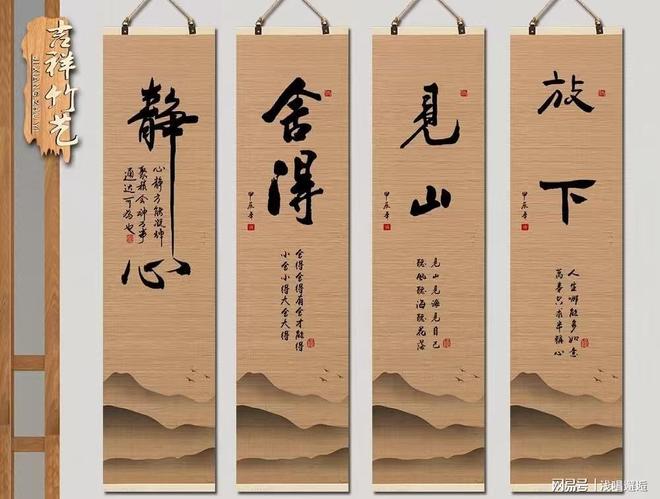 吉祥竹艺
JIXIANGZHUYI
静心
心静方能凝神
会神万事
通达可為也
舍得
甲辰年
舍得舍得有舍才能得
小舍小得大舍大得
见山
甲辰年
见山见海见自己
听风听海听花落
放下
甲辰年
人生哪能多如意
萬事只求半稱心
网易号 | 浅唱邂逅